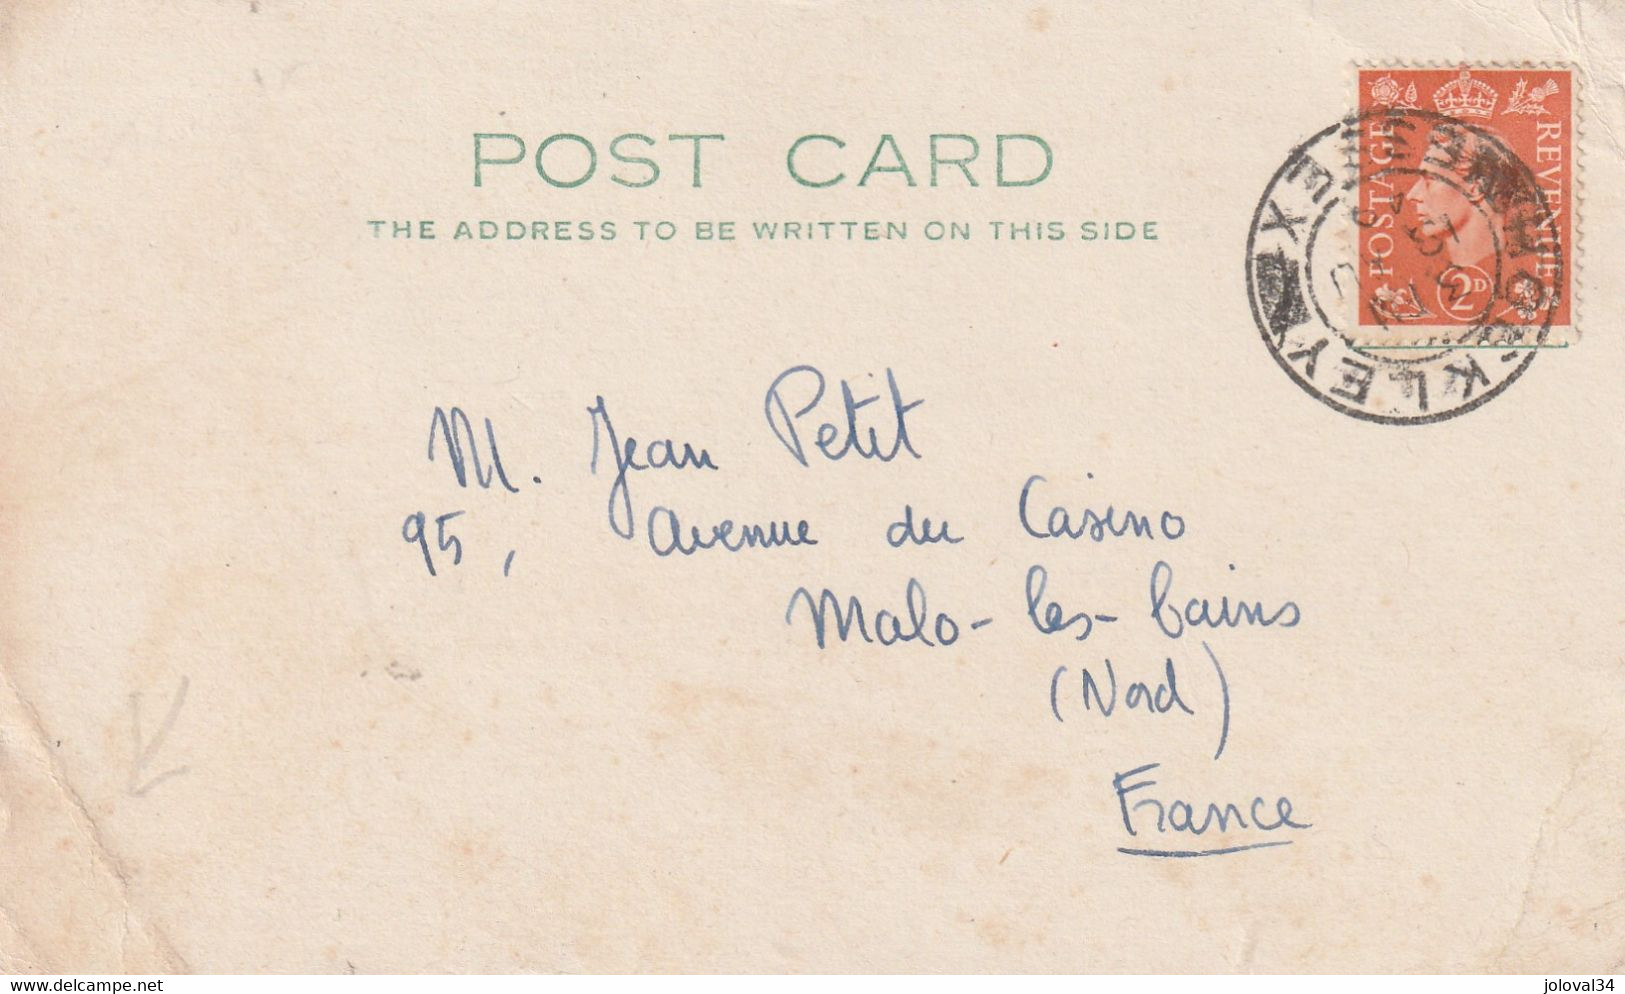 POST CARD
THE ADDRESS TO BE WRITTEN ON THIS SIDE
POSTAGE
REVENUE
2D
M. Jean Petit
95, Avenue du Casino
Malo-les-bains
(Nord)
France
www.delcampe.net
joloval34